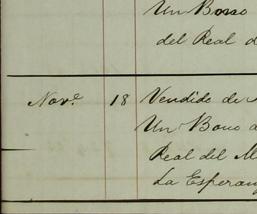 Un Bono
del Real d
Nov.e 18 Vendido de
Un Bono d
Real del M
La Esperanz